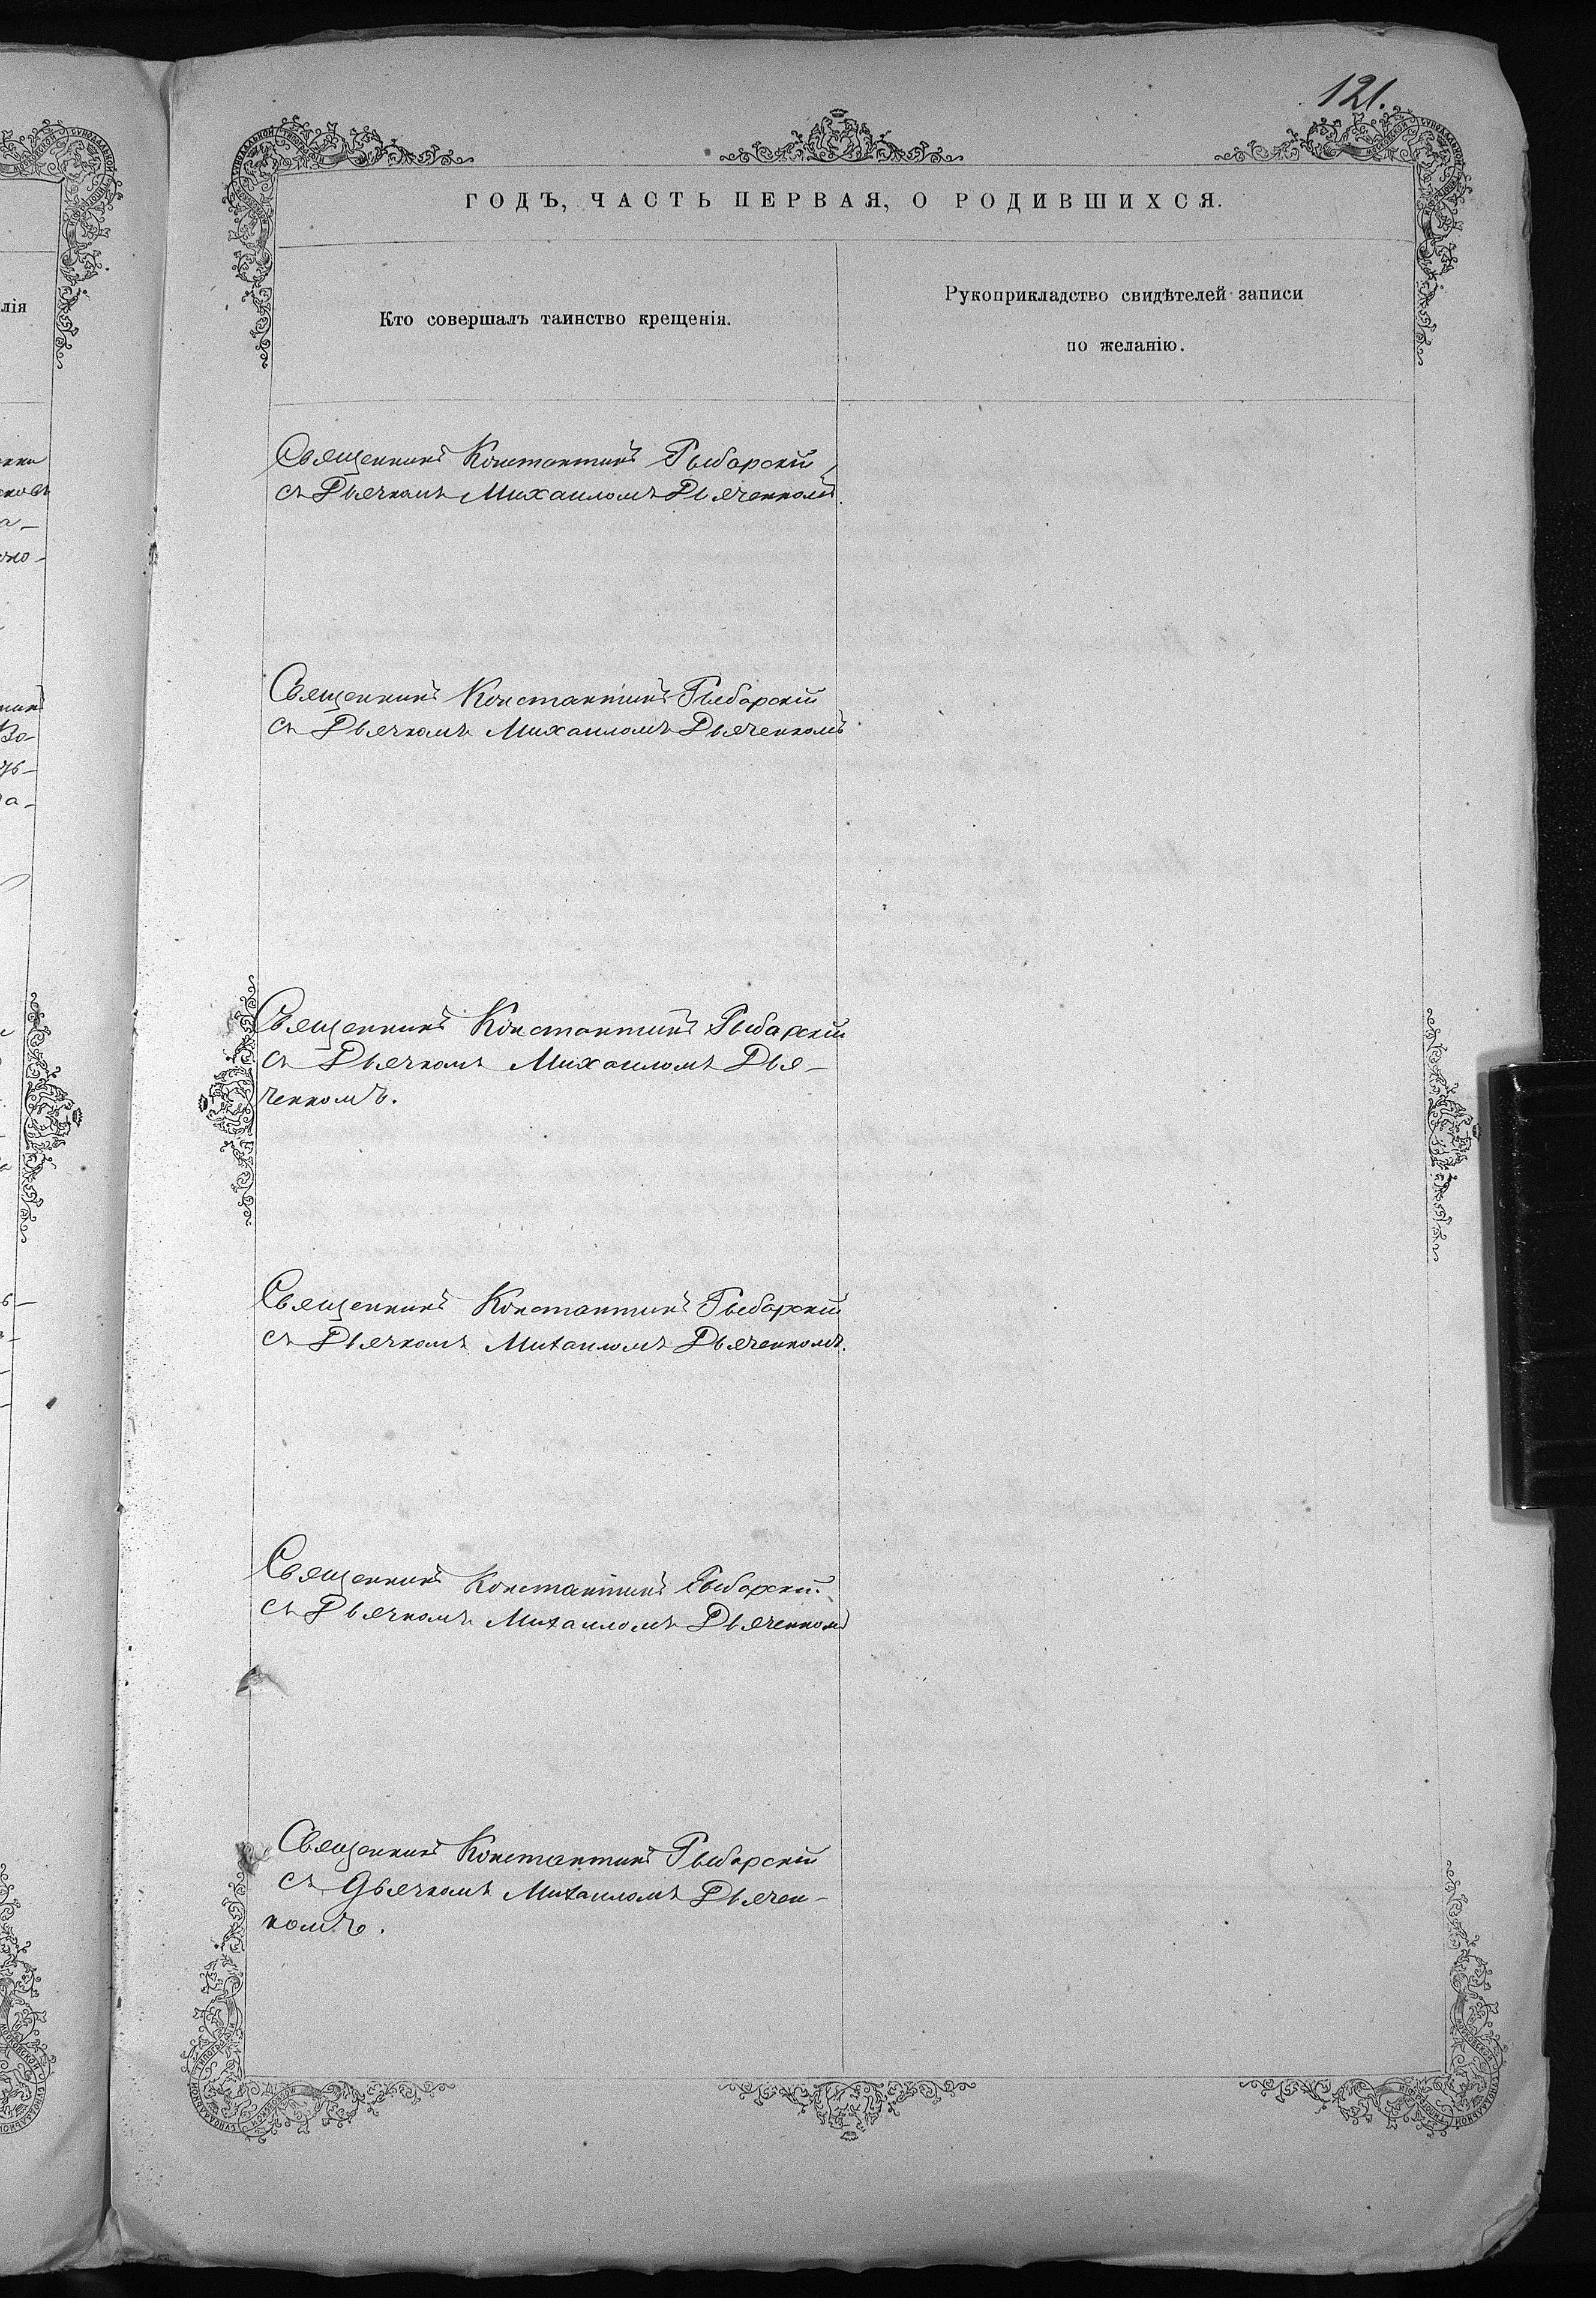 121.
ГОДЪ, ЧАСТЬ ПЕРВАЯ, О РОДИВШИХСЯ.
Кто совершалъ таинство крещенія.
Рукоприкладство свидѣтелей записи
по желанію.
Священникъ Константинъ Рыбарскій
съ Дьячкомъ Михаиломъ Дьяченкомъ.
Священникъ Константинъ Рыбарскій
съ Дьячкомъ Михаиломъ Дьяченкомъ
Священникъ Константинъ Рыбарскій
съ Дьячкомъ Михаиломъ Дья-
ченкомъ.
Священникъ Константинъ Рыбарскій
съ Дьячкомъ Михаиломъ Дьяченкомъ.
Священникъ Константинъ Рыбарскій.
съ Дьячкомъ Михаиломъ Дьяченкомъ
Священникъ Константинъ Рыбарскій
съ Дьячкомъ Михаиломъ Дьячен-
комъ.